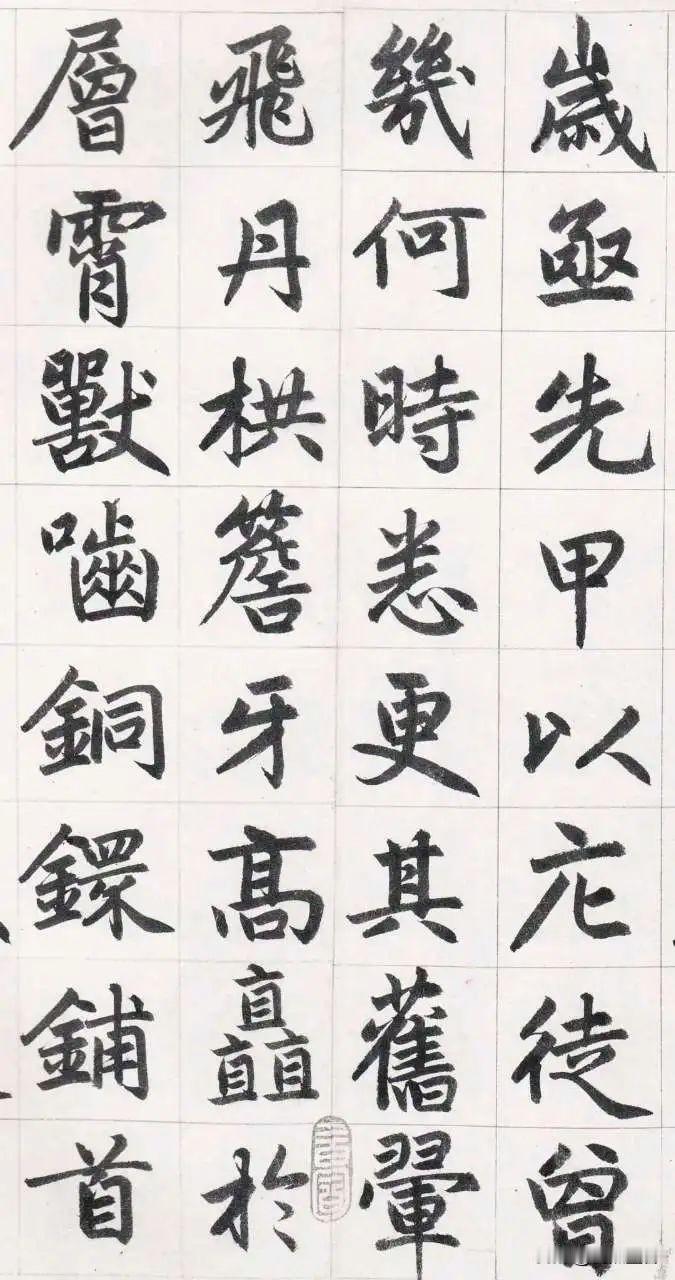 歲亟先甲以庀徒曾
幾何時悉更其舊翬
飛丹栱簷牙髙矗於
層霄獸噛銅鐶鋪首